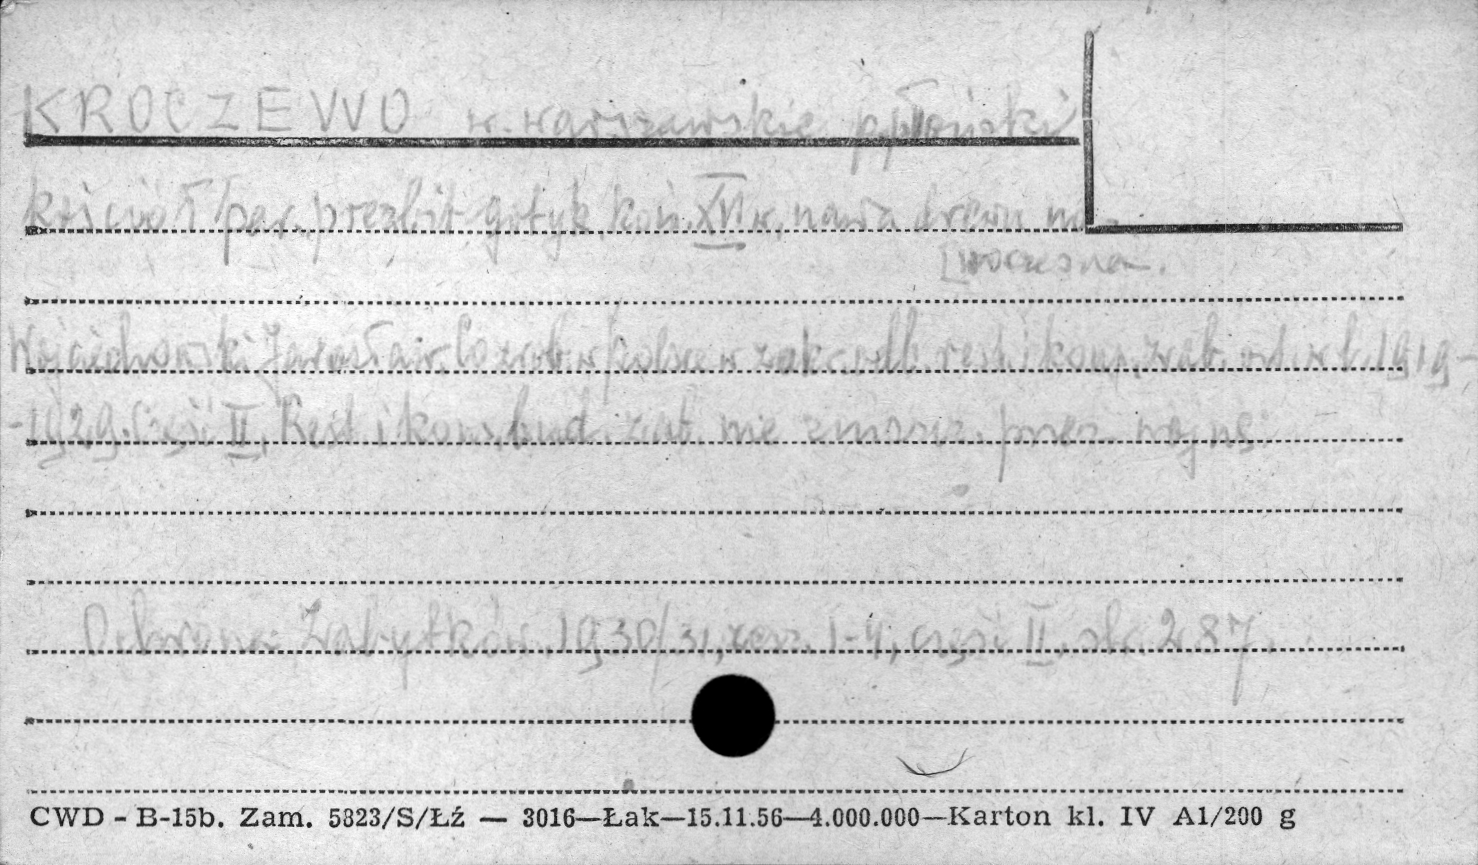 KROCZEWO w. warszawskie p. płoński
kościół par. prezbit. gotyk. koń. XVI w., nawa drewn. no-
[woczesna.
Wojciechowski Jarosław, Co zrob. w Polsce w zakr. rest. i kons. zab. 1919-
-1929. Część II, Rest. i kons. bud. zab. nie zniszcz. przez wojnę.
Ochrona Zabytków, 1930/31, zesz. 1-4, część II, str. 287.
CWD - B-15b. Zam. 5823/S/Łź — 3016—Łak—15.11.56—4.000.000—Karton kl. IV A1/200 g